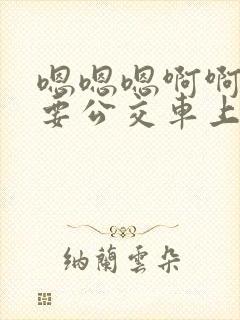 嗯嗯嗯啊啊
要公交車上
納蘭雲朵